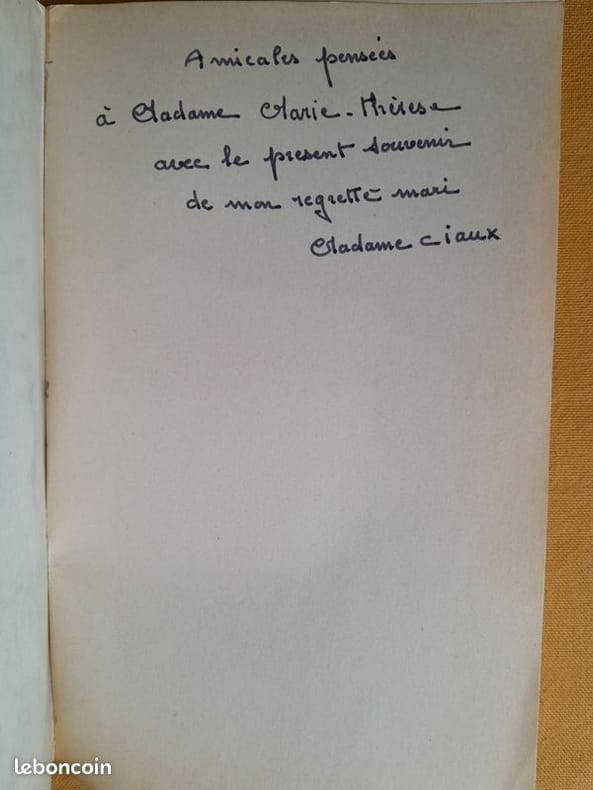 Amicales pensées
à Madame Marie-Thérèse
avec le present souvenir
de mon regretté mari
Madame Ciaux
leboncoin